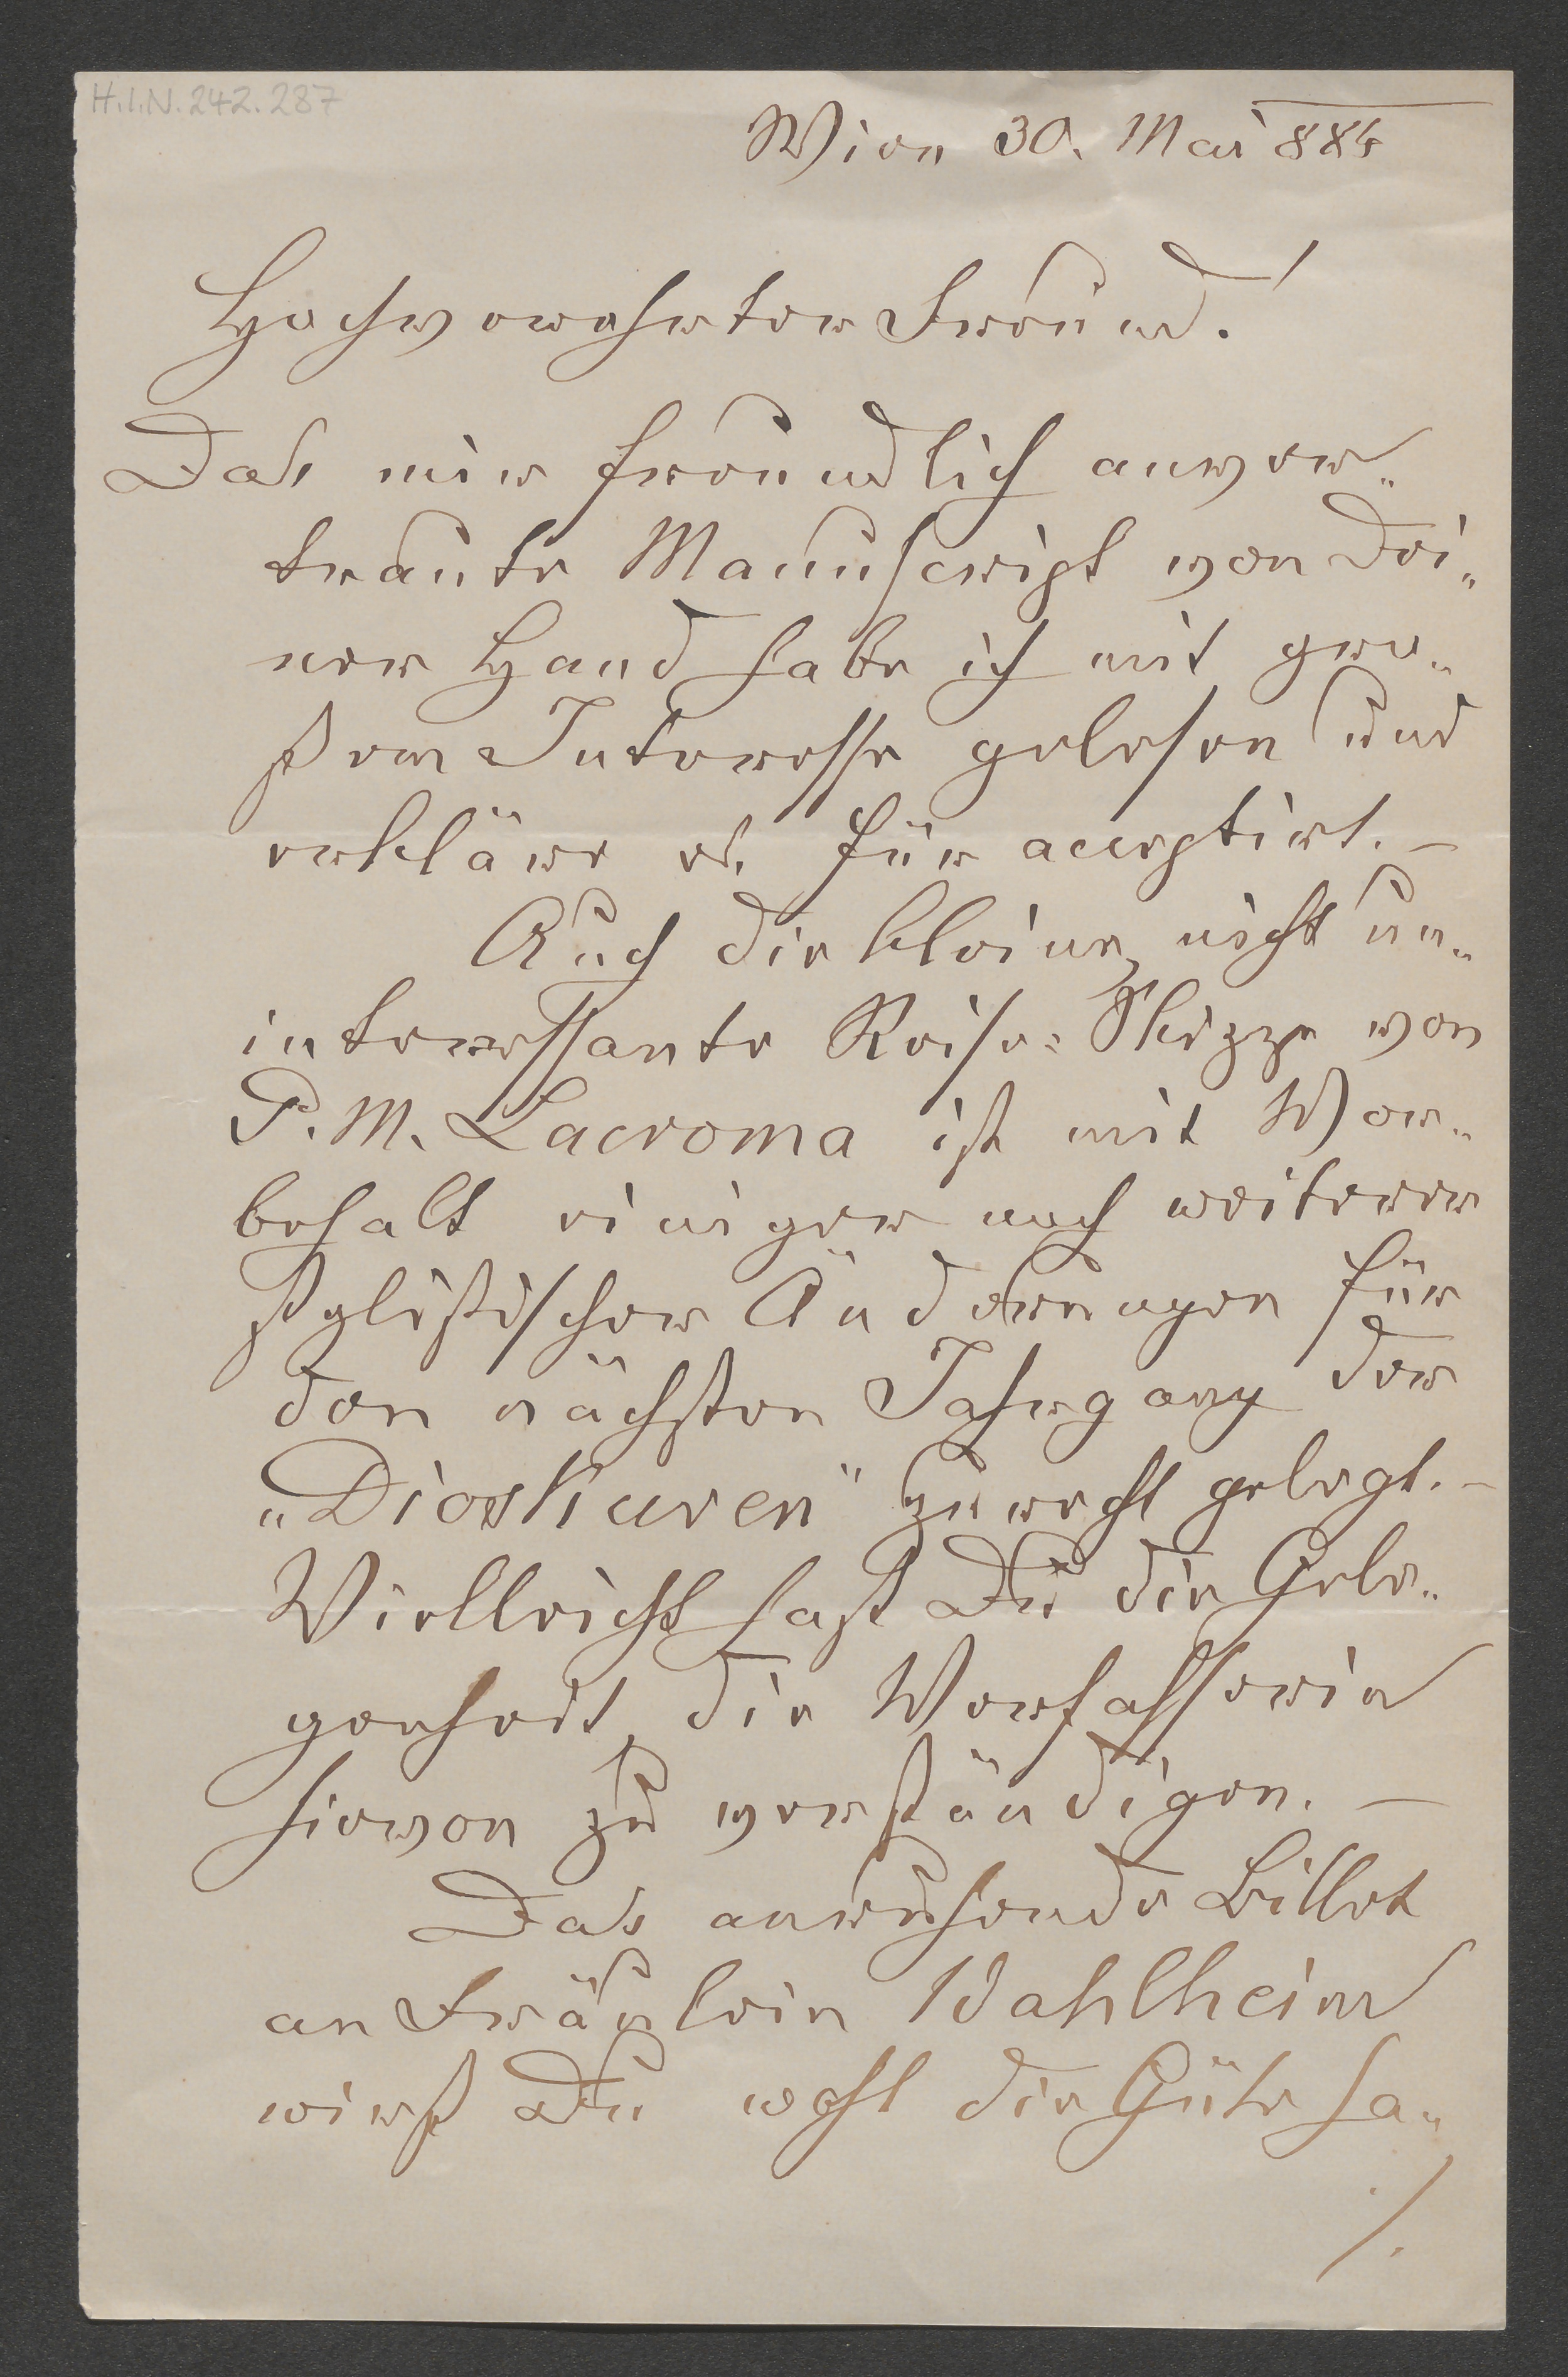 H.I.N. 242.287
Wien 30. Mai 884
Hochverehrter Freund!
Das mir freundlich anver„
traute Manuscript von Dei„
ner Hand habe ich mit gro„
ßem Interesse gelesen und
erkläre es für acceptirt. –
Auch die kleine, nicht un„
interessante Reise-Skizze von
P. M. Lacroma ist mit Vor„
behalt einiger noch weiterer
stylistischer Änderungen für
den nächsten Jahrgang der
„Dioskuren" zurecht gelegt. –
Vielleicht hast Du die Gele„
genheit, die Verfasserin
hievon zu verständigen. –
Das anruhende Billet
an Fräulein Wahlheim
wirst Du wohl die Güte ha„
./.